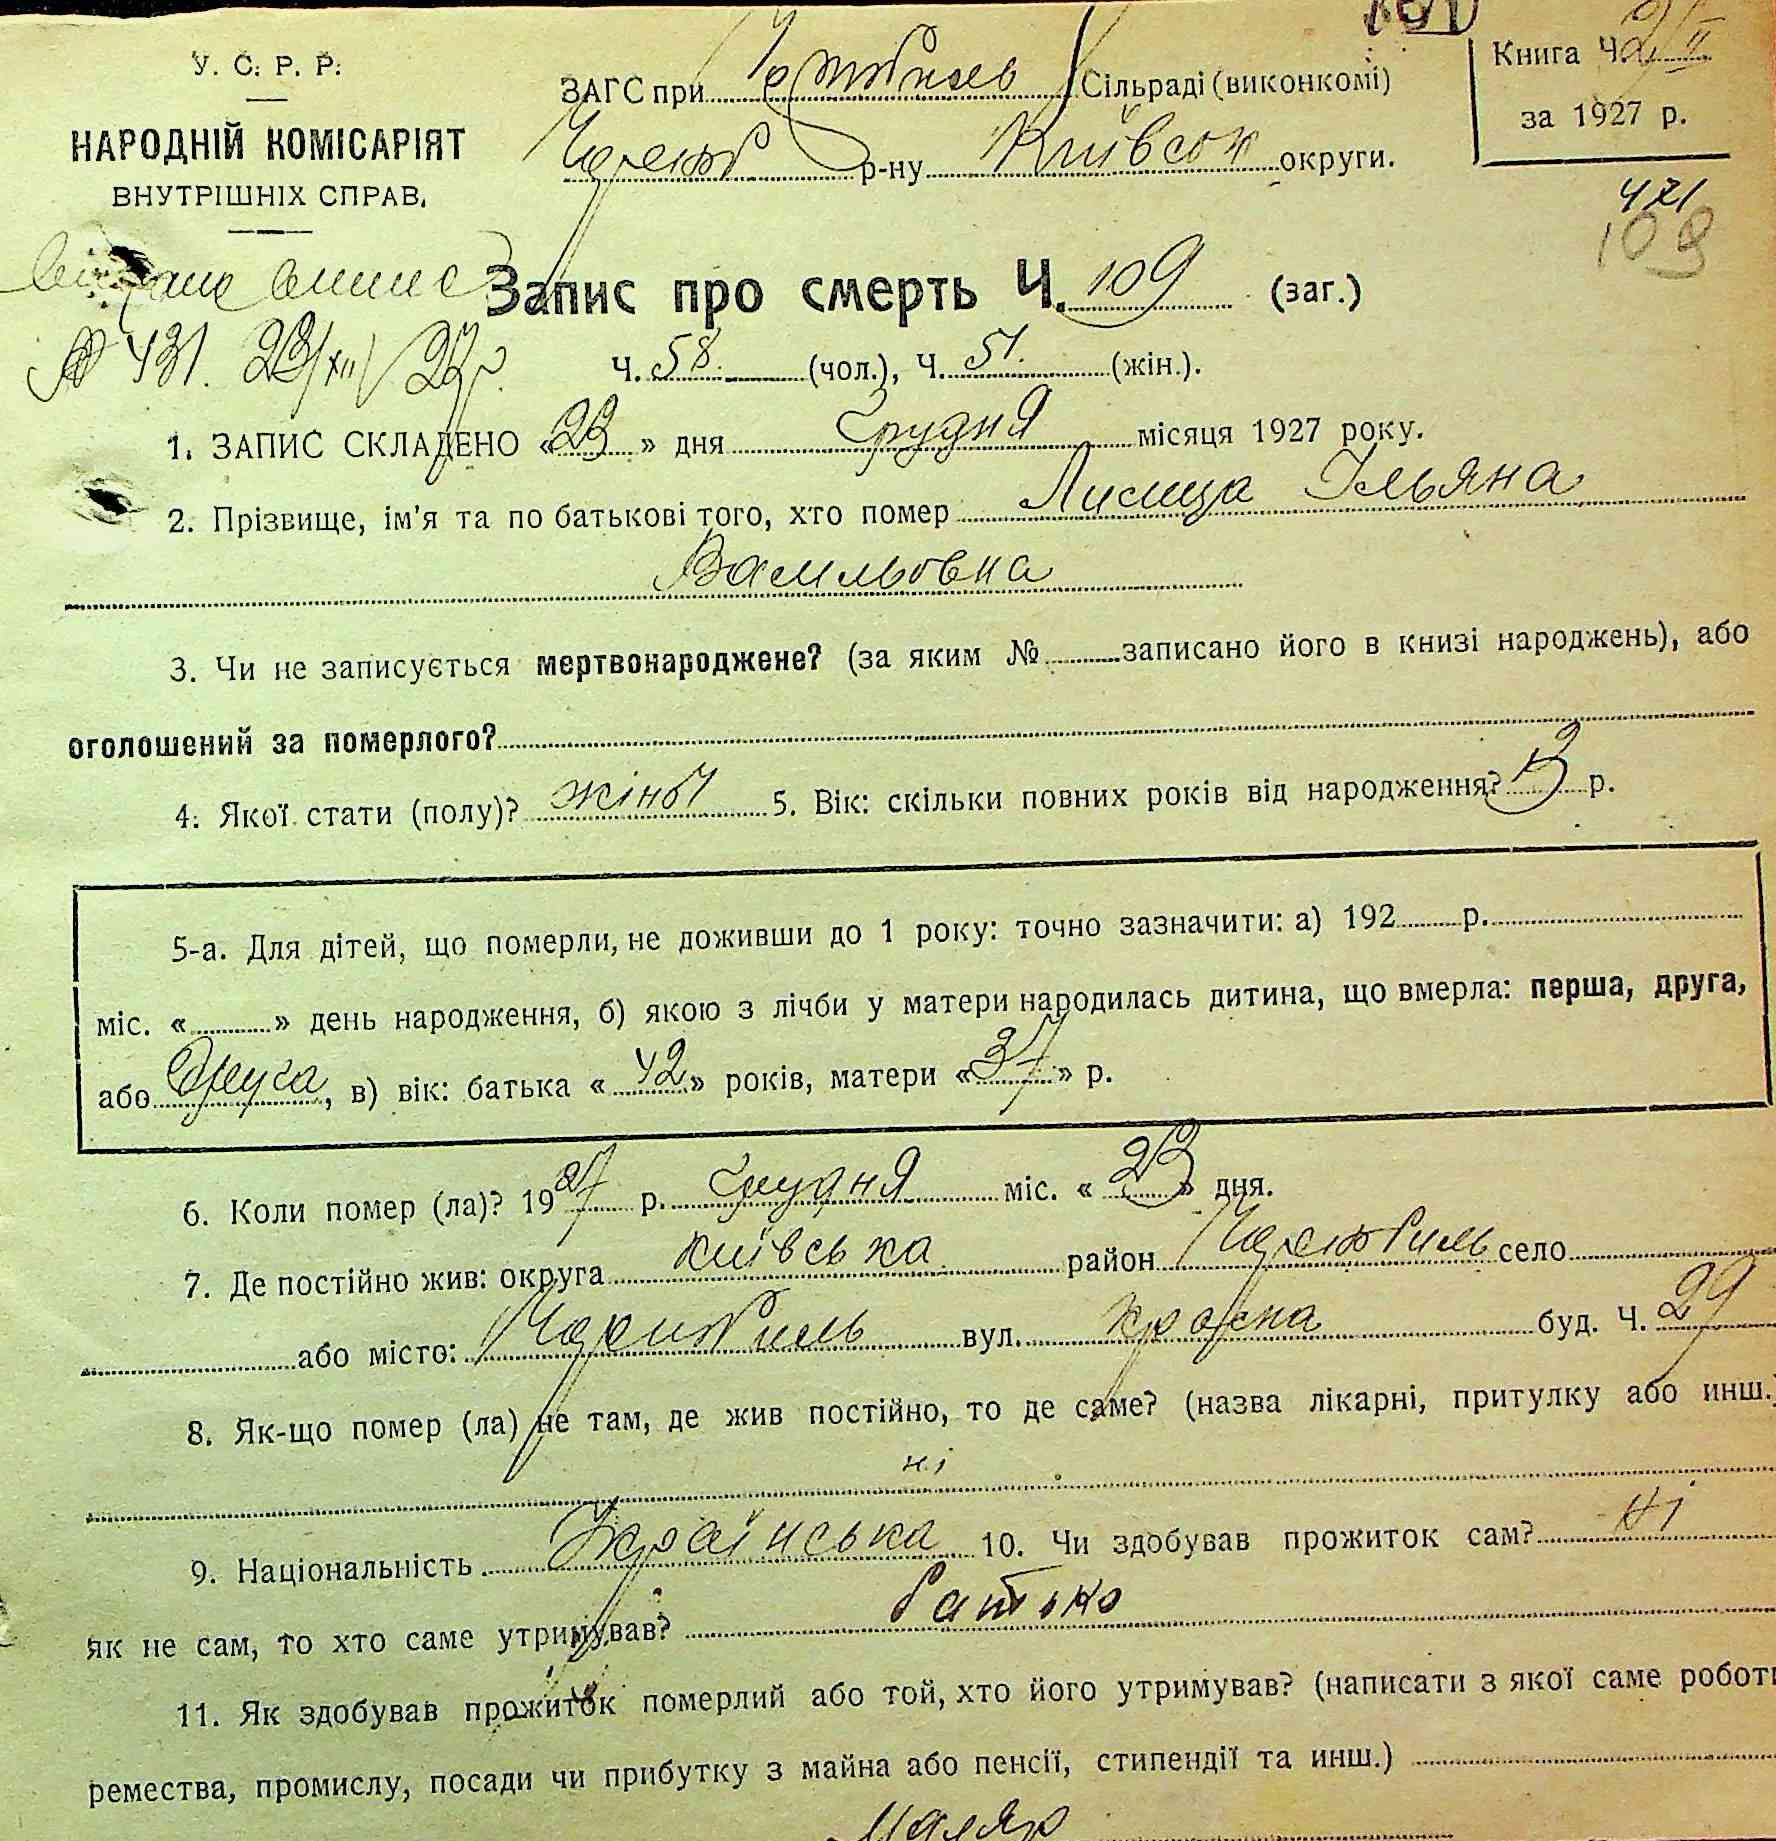 У. С. Р. Р.
НАРОДНІЙ КОМІСАРІЯТ
ВНУТРІШНІХ СПРАВ.
ЗАГС при Сільраді (виконкомі)
р-ну Київськ округи.
Книга Ч.
за 1927 р.
471
109
№ 431. 23/XII 27 р.
Запис про смерть Ч. 109 (заг.)
Ч. 58. (чол.), Ч. 51. (жін.).
1. ЗАПИС СКЛАДЕНО «23» дня Грудня місяця 1927 року.
2. Прізвище, ім'я та по батькові того, хто помер Лисица Ульяна
Васильовна
3. Чи не записується мертвонароджене? (за яким № записано його в книзі народжень), або
оголошений за померлого?
4. Якої стати (полу)? жіноч 5. Вік: скільки повних років від народження? р.
5-а. Для дітей, що померли, не доживши до 1 року: точно зазначити: а) 192 р.
міс. « » день народження, б) якою з лічби у матери народилась дитина, що вмерла: перша, друга,
або друга, в) вік: батька «42» років, матери «37» р.
6. Коли помер (ла)? 1927 р. Грудня міс. «23» дня.
7. Де постійно жив: округа київська район Чорнобиль село
або місто: Чорнобиль вул. буд. Ч. 29
8. Як-що помер (ла) не там, де жив постійно, то де саме? (назва лікарні, притулку або инш.)
ні
9. Національність Українська 10. Чи здобував прожиток сам? ні
як не сам, то хто саме утримував? батько
11. Як здобував прожиток померлий або той, хто його утримував? (написати з якої саме роботи
ремества, промислу, посади чи прибутку з майна або пенсії, стипендії та инш.)
Маляр